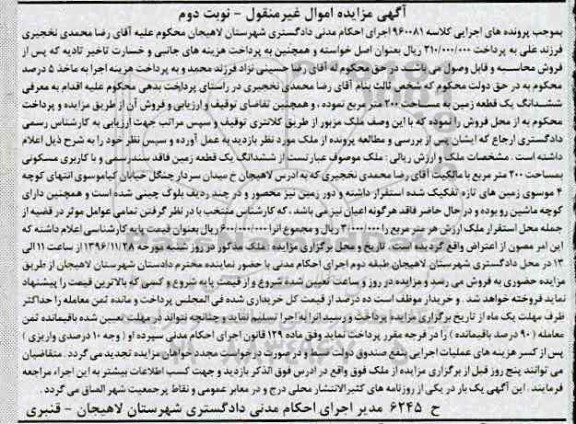 آگهی مزایده اموال غیرمنقول - نوبت دوم
بموجب پرونده های اجرایی کلاسه ۹۶۰۰۸۱ اجرای احکام مدنی دادگستری شهرستان لاهیجان محکوم علیه آقای رضا محمدی نخجیری
فرزند علی به پرداخت ۳۱۰/۰۰۰/۰۰۰ ریال بعنوان اصل خواسته و همچنین به پرداخت هزینه های جانبی و خسارت تاخیر تادیه که پس از
فروش محاسبه و قابل وصول می باشد در حق محکوم له آقای رضا حسینی نژاد فرزند مجید و به پرداخت هزینه اجرا به ماخذ ۵ درصد
محکوم به در حق دولت محکوم که شخص ثالث بنام آقای رضا محمدی نخجیری در راستای پرداخت بدهی محکوم علیه اقدام به معرفی
ششدانگ یک قطعه زمین به مساحت ۲۰۰ متر مربع نموده ، و همچنین تقاضای توقیف و ارزیابی و فروش آن از طریق مزایده و پرداخت
محکوم به از محل فروش را نموده که با این وصف ملک مزبور از طریق کلانتری توقیف و سپس مراتب جهت ارزیابی به کارشناس رسمی
دادگستری ارجاع که ایشان پس از بررسی و مطالعه پرونده از ملک مورد نظر بازدید به عمل آورده و سپس نظر خود را به شرح ذیل اعلام
داشته است . مشخصات ملک و ارزش ریالی : ملک موصوف عبارتست از ششدانگ یک قطعه زمین فاقد سند رسمی و با کاربری مسکونی
بمساحت ۲۰۰ متر مربع با مالکیت آقای رضا محمدی نخجیری که به ادرس لاهیجان خ میدان سردار جنگل خیابان کیاموسوی انتهای کوچه
۴ موسوی زمین های تازه تفکیک شده استقرار داشته و دور زمین نیز محصور و در چند ردیف بلوک چینی شده است و همچنین دارای
کوچه ماشین رو بوده و در حال حاضر فاقد هرگونه اعیان نیز می باشد ، که کارشناس منتخب با در نظر گرفتن تمامی عوامل موثر در قضیه از
جمله محل استقرار ملک ارزش هر متر مربع را ۳/۰۰۰/۰۰۰ ریال و مجموع آنرا ۶۰۰/۰۰۰/۰۰۰ ریال بعنوان قیمت پایه کارشناسی اعلام داشته که
این امر مصون از اعتراض واقع گردیده است. تاریخ و محل برگزاری مزایده : ملک مذکور در روز شنبه مورخه ۱۳۹۶/۱۱/۲۸ از ساعت ۱۱ الی
۱۳ در محل دادگستری شهرستان لاهیجان طبقه دوم اجرای احکام مدنی با حضور نماینده محترم دادستان شهرستان لاهیجان از طریق
مزایده حضوری به فروش می رسد و مزایده در روز و ساعت تعیین شده شروع و از قیمت پایه شروع و کسی که بالاترین قیمت را پیشنهاد
نماید فروخته خواهد شد . و خریدار موظف است ده درصد از قیمت کل خریداری شده فی المجلس پرداخت و مانده ثمن معامله را حداکثر
ظرف مهلت یک ماه از تاریخ برگزاری مزایده پرداخت و رسید آنرا به اجرا تسلیم نماید و چنانچه نتواند در مهلت تعیین شده باقیمانده ثمن
معامله ( ۹۰ درصد باقیمانده ) را در فرجه مقرر پرداخت نماید وفق ماده ۱۲۹ قانون اجرای احکام مدنی سپرده او ( وجه ۱۰ درصدی واریزی )
پس از کسر هزینه های عملیات اجرایی بنفع صندوق دولت ضبط و در صورت درخواست مجدد خواهان مزایده تجدید می گردد . متقاضیان
می توانند پنج روز قبل از برگزاری مزایده از ملک فوق واقع در ادرس فوق الذکر بازدید و جهت کسب اطلاعات بیشتر به این اجرا، مراجعه
فرمایند . این آگهی یک بار در یکی از روزنامه های کثیرالانتشار محلی درج و در معابر عمومی و نقاط پرجمعیت شهر الصاق می گردد .
ح ۶۲۴۵ مدیر اجرای احکام مدنی دادگستری شهرستان لاهیجان - قنبری